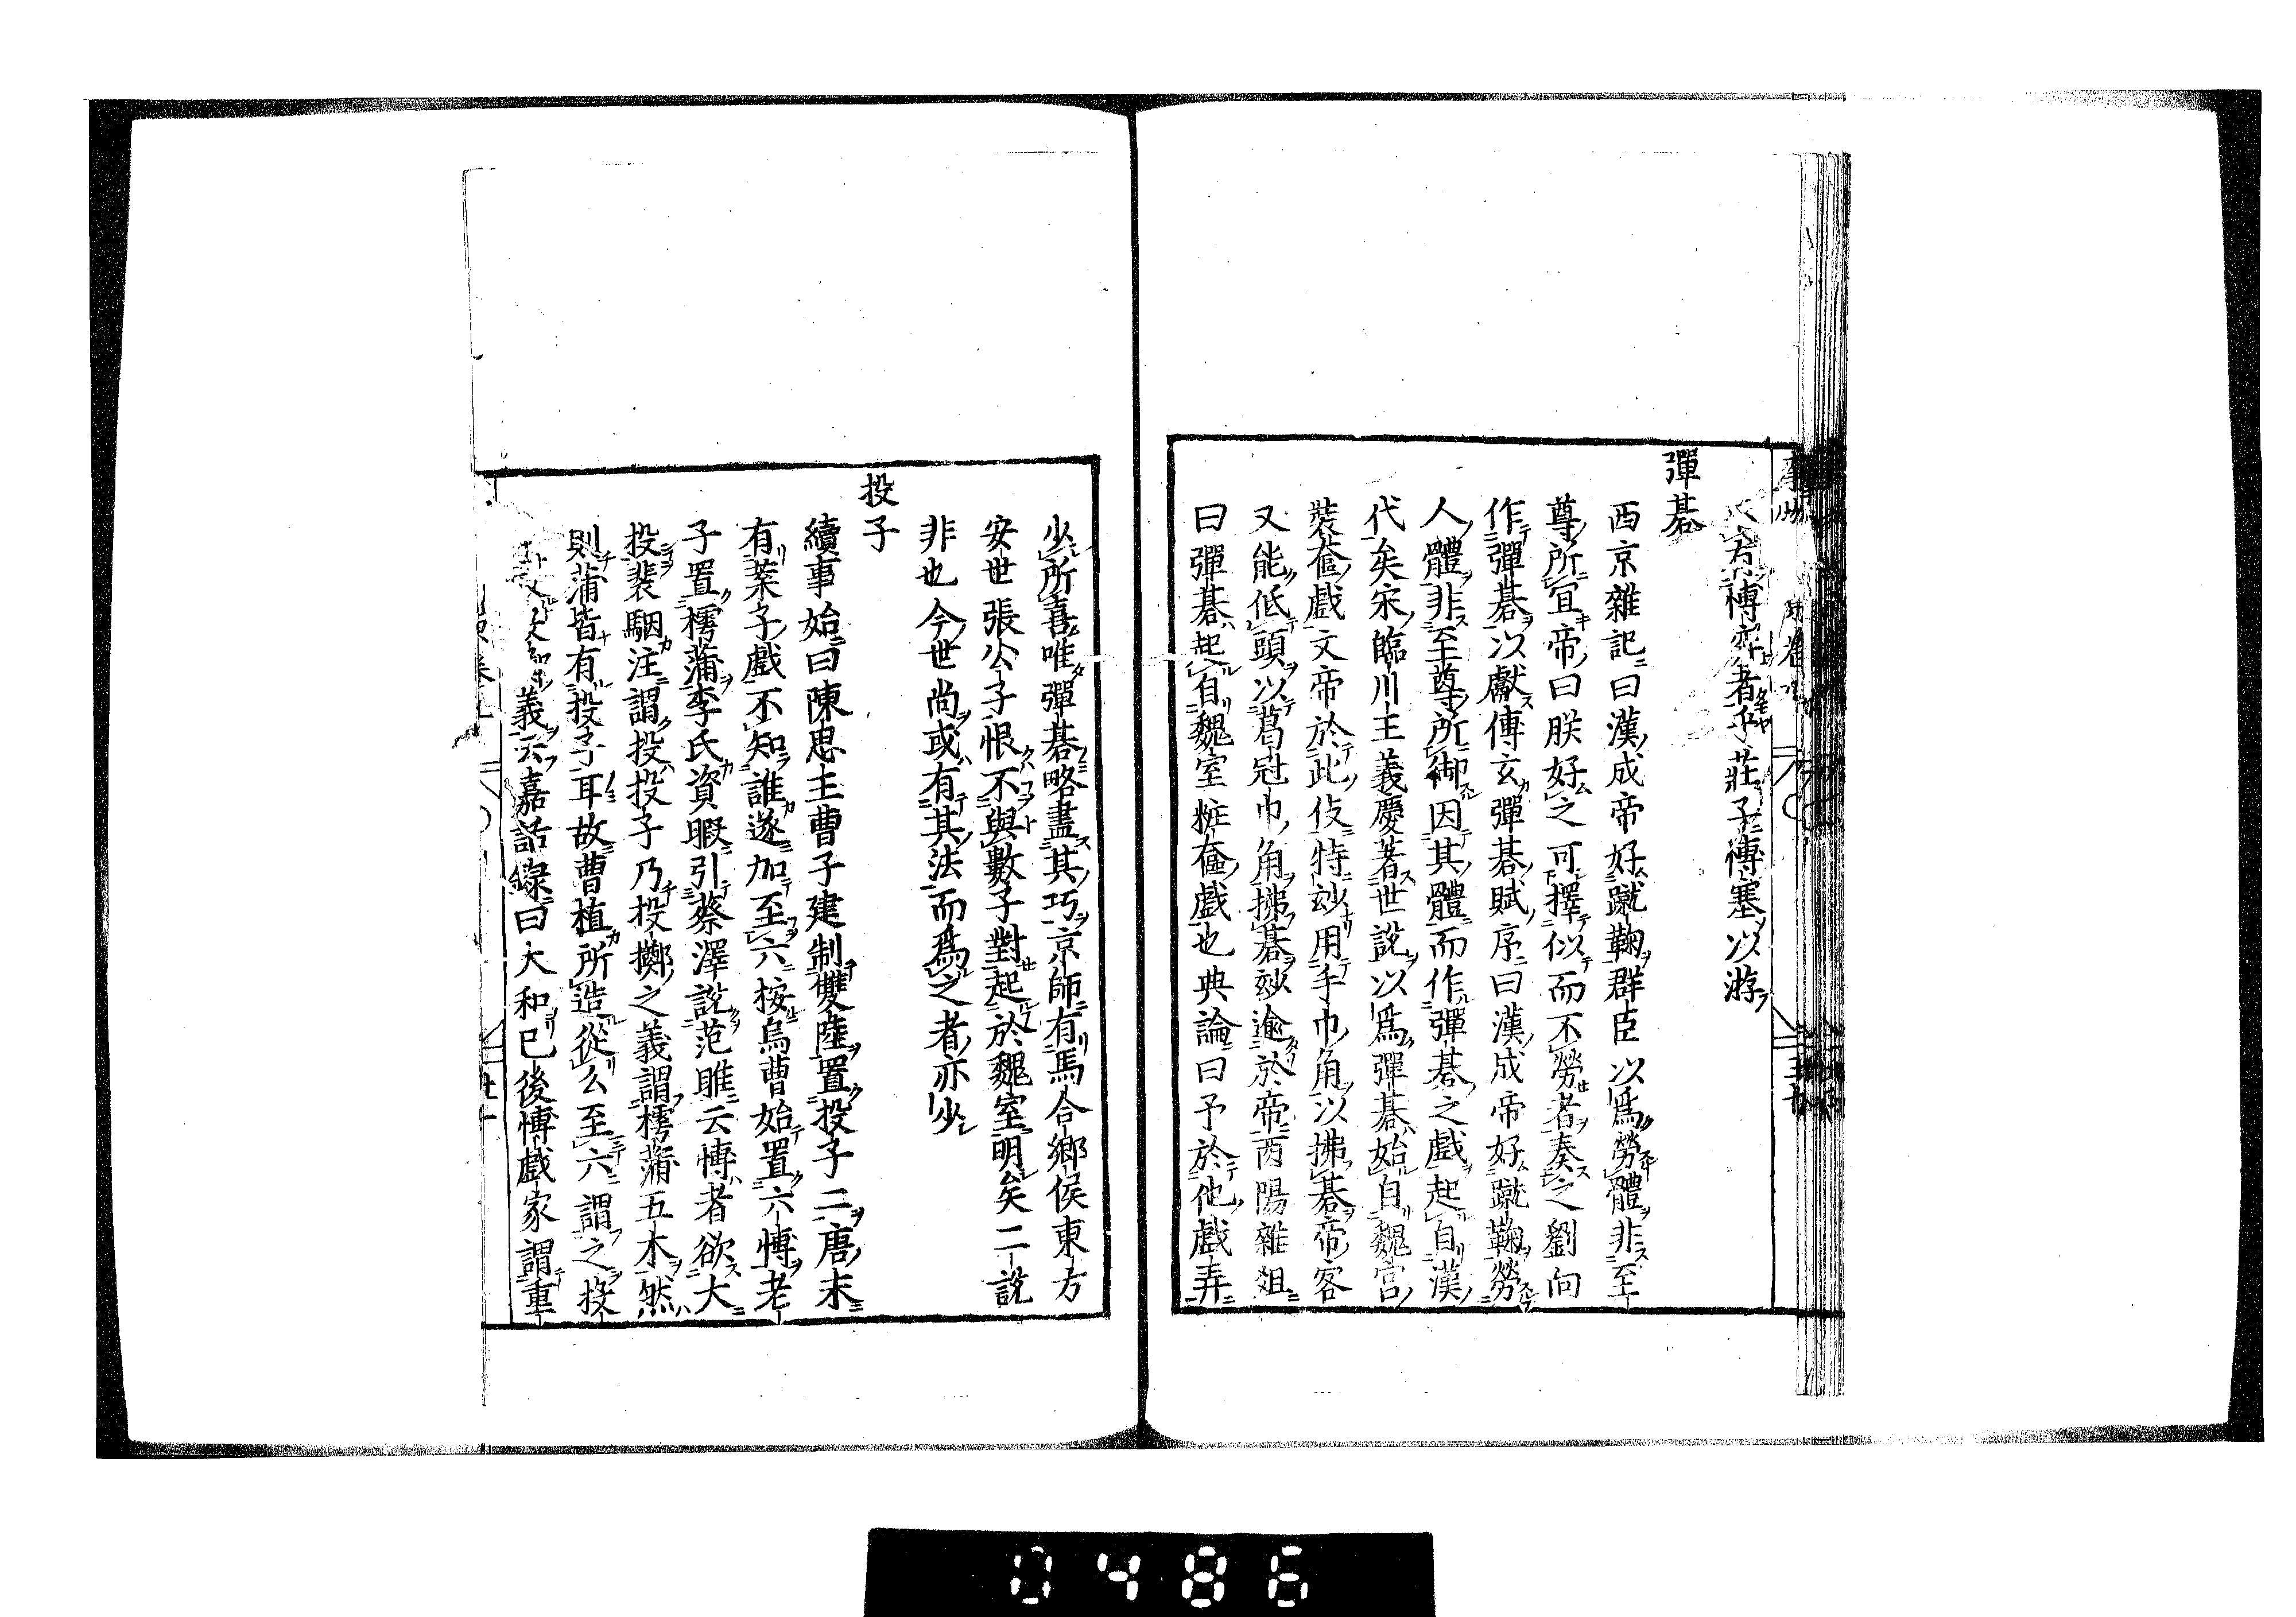 有博奕者乎莊子博塞以游
彈棊
西京雜記曰漢成帝好蹴鞠群臣以爲勞體非至
尊所宜帝曰朕好之可擇似而不勞者奏之劉向
作彈棊以獻傳玄彈棊賦序曰漢成帝好蹴鞠勞
人體非至尊所御因其體而作彈棊之戲起自漢
代矣宋臨川王義慶著世說以爲彈棊始自魏宮
裝奩戲文帝於此伎特玅用手巾角以拂棊帝客
又能低頭以葛冠巾角拂棊玅逾於帝酉陽雜俎
曰彈棊起自魏室粧奩戲也典論曰予於他戲弄
少所喜唯彈棊略盡其巧京師有馬合鄉侯東方
安世張公子恨不與數子對起於魏室明矣二說
非也今世尚或有其法而爲之者亦少
投子
續事始曰陳思王曹子建制雙陸置投子二唐末
有葉子戲不知誰遂加至六按烏曹始置六博老
子置樗蒲李氏資暇引蔡澤說范雎云博者欲大
投裴駰注謂投投子乃投擲之義謂樗蒲五木然
則蒲皆有投子耳故曹植所造從么至六謂之投
義云嘉話錄曰大和已後博戲家謂重
0486